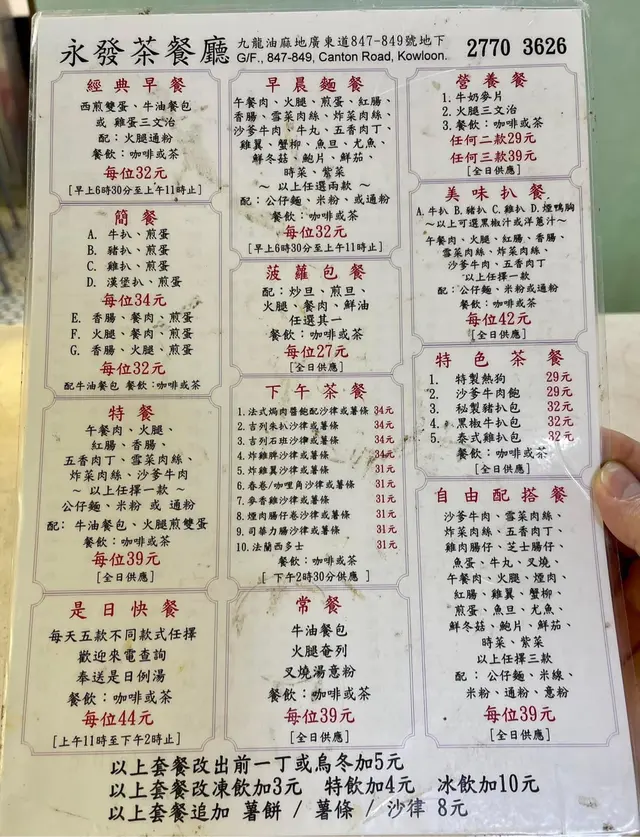 永發茶餐廳
九龍油麻地廣東道847-849號地下
G/F., 847-849, Canton Road, Kowloon.
2770 3626
經典早餐
西煎雙蛋、牛油餐包
或 雞蛋三文治
配：火腿通粉
餐飲：咖啡或茶
每位32元
[早上6時30分至上午11時止]
簡餐
A. 牛扒、煎蛋
B. 豬扒、煎蛋
C. 雞扒、煎蛋
D. 漢堡扒、煎蛋
每位34元
E. 香腸、餐肉、煎蛋
F. 火腿、餐肉、煎蛋
G. 香腸、火腿、煎蛋
每位32元
配牛油餐包 餐飲：咖啡或茶
特餐
午餐肉、火腿、
紅腸、香腸、
五香肉丁、雪菜肉絲、
炸菜肉絲、沙爹牛肉
～ 以上任擇一款 ～
公仔麵、米粉 或 通粉
配：牛油餐包、火腿煎雙蛋
餐飲：咖啡或茶
每位39元
[全日供應]
是日快餐
每天五款不同款式任擇
歡迎來電查詢
奉送是日例湯
餐飲：咖啡或茶
每位44元
[上午11時至下午2時止]
早晨麵餐
午餐肉、火腿、煎蛋、紅腸、
香腸、雪菜肉絲、炸菜肉絲、
沙爹牛肉、牛丸、五香肉丁、
雞翼、蟹柳、魚旦、尤魚、
鮮冬菇、鮑片、鮮茄、
時菜、紫菜
～ 以上任選兩款 ～
配：公仔麵、米粉、或通粉
餐飲：咖啡或茶
每位32元
[早上6時30分至上午11時止]
菠蘿包餐
配：炒旦、煎旦、
火腿、餐肉、鮮油
任選其一
餐飲：咖啡或茶
每位27元
[全日供應]
下午茶餐
1. 法式焗肉醬飽配沙律或薯條 34元
2. 吉列朱扒沙律或薯條 34元
3. 吉列石班沙律或薯條 34元
4. 炸雞脾沙律或薯條 34元
5. 炸雞翼沙律或薯條 31元
6. 春卷/咖喱角沙律或薯條 31元
7. 麥香雞沙律或薯條 31元
8. 煙肉腸仔卷沙律或薯條 31元
9. 司華力腸沙律或薯條 31元
10. 法蘭西多士 31元
餐飲：咖啡或茶
[ 下午2時30分供應 ]
常餐
牛油餐包
火腿奄列
叉燒湯意粉
餐飲：咖啡或茶
每位39元
[全日供應]
營養餐
1. 牛奶麥片
2. 火腿三文治
3. 餐飲：咖啡或茶
任何二款29元
任何三款39元
[全日供應]
美味扒餐
A. 牛扒 B. 豬扒 C. 雞扒 D. 煙鴨胸
～以上可選黑椒汁或洋蔥汁～
午餐肉、火腿、紅腸、香腸、
雪菜肉絲、炸菜肉絲、
沙爹牛肉、五香肉丁
以上任擇一款
配：公仔麵、米粉或通粉
餐飲：咖啡或茶
每位42元
[全日供應]
特色茶餐
1. 特製熱狗 29元
2. 沙爹牛肉飽 29元
3. 秘製豬扒包 32元
4. 黑椒牛扒包 32元
5. 泰式雞扒包 32元
餐飲：咖啡或茶
[全日供應]
自由配搭餐
沙爹牛肉、雪菜肉絲、
炸菜肉絲、五香肉丁、
雞肉腸仔、芝士腸仔、
魚蛋、牛丸、叉燒、
午餐肉、火腿、煙肉、
紅腸、雞翼、蟹柳、
煎蛋、魚旦、尤魚、
鮮冬菇、鮑片、鮮茄、
時菜、紫菜
以上任擇三款
配： 公仔麵、米線、
米粉、通粉、意粉
餐飲：咖啡或茶
每位39元
[全日供應]
以上套餐改出前一丁或烏冬加5元
以上套餐改凍飲加3元 特飲加4元 冰飲加10元
以上套餐追加 薯餅 / 薯條 / 沙律 8元